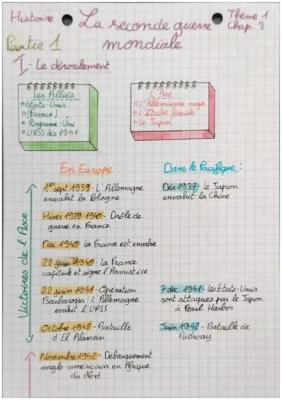 Histoire
La seconde guerre mondiale
Thème 1
Chap. 3
Partie 1
I - Le déroulement
Les Alliés
• Etats-Unis
• (France)
• Royaume-Uni
• URSS dès 1941
L'Axe
• L'Allemagne nazie
• L'Italie fasciste
• Le Japon
En Europe
Dans le Pacifique :
Victoires de l'Axe
1er sept 1939 - L'Allemagne
envahit la Pologne
Dès 1937 : le Japon
envahit la Chine
Hiver 1939-1940 - Drôle de
guerre en France
Mai 1940 la France est envahie
22 juin 1940 - La France
capitule et signe l'Armistice
22 juin 1941 - Opération
Barbarossa : L'Allemagne
envahit l'URSS
7 dec. 1941 - les Etats-Unis
sont attaqués par le Japon
à Pearl Harbor
Octobre 1942 - Bataille
d'El Alamein
Juin 1942 - Bataille de
Midway
Novembre 1942 - Débarquement
anglo-américain en Afrique
du Nord